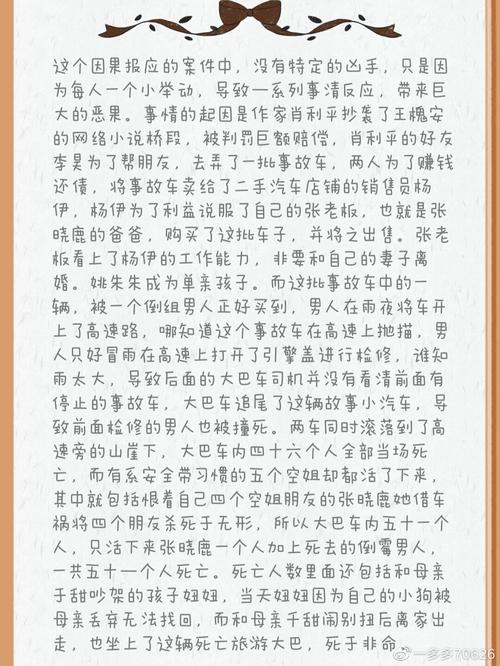 这个因果报应的案件中，没有特定的凶手，只是因
为每人一个小举动，导致一系列事清反应，带来巨
大的恶果。事情的起因是作家肖利平抄袭了王槐安
的网络小说桥段，被判罚巨额赔偿，肖利平的好友
李昊为了帮朋友，去弄了一批事故车，两人为了赚钱
还债，将事故车卖给了二手汽车店铺的销售员杨
伊，杨伊为了利益说服了自己的张老板，也就是张
晓鹿的爸爸，购买了这批车子，并将之出售。张老
板看上了杨伊的工作能力，非要和自己的妻子离
婚。姚朱朱成为单亲孩子。而这批事故车中的一
辆，被一个倒组男人正好买到，男人在雨夜将车开
上了高速路，哪知道这个事故车在高速上抛描，男
人只好冒雨在高速上打开了引擎盖进行检修，谁知
雨太大，导致后面的大巴车司机并没有看清前面有
停止的事故车，大巴车追尾了这辆故事小汽车，导
致前面检修的男人也被撞死。两车同时滚落到了高
速旁的山崖下，大巴车内四十六个人全部当场死
亡，而有系安全带习惯的五个空姐却都活了下来，
其中就包括恨着自己四个空姐朋友的张晓鹿她借车
祸将四个朋友杀死于无形，所以大巴车内五十一个
人，只活下来张晓鹿一个人加上死去的倒霉男人，
一共五十一个人死亡。死亡人数里面还包括和母亲
于甜吵架的孩子妞妞，当天妞妞因为自己的小狗被
母亲丢弃无法找回，而和母亲千甜闹别扭后离家出
走，也坐上了这辆死亡旅游大巴，死于非命。
一多多70626